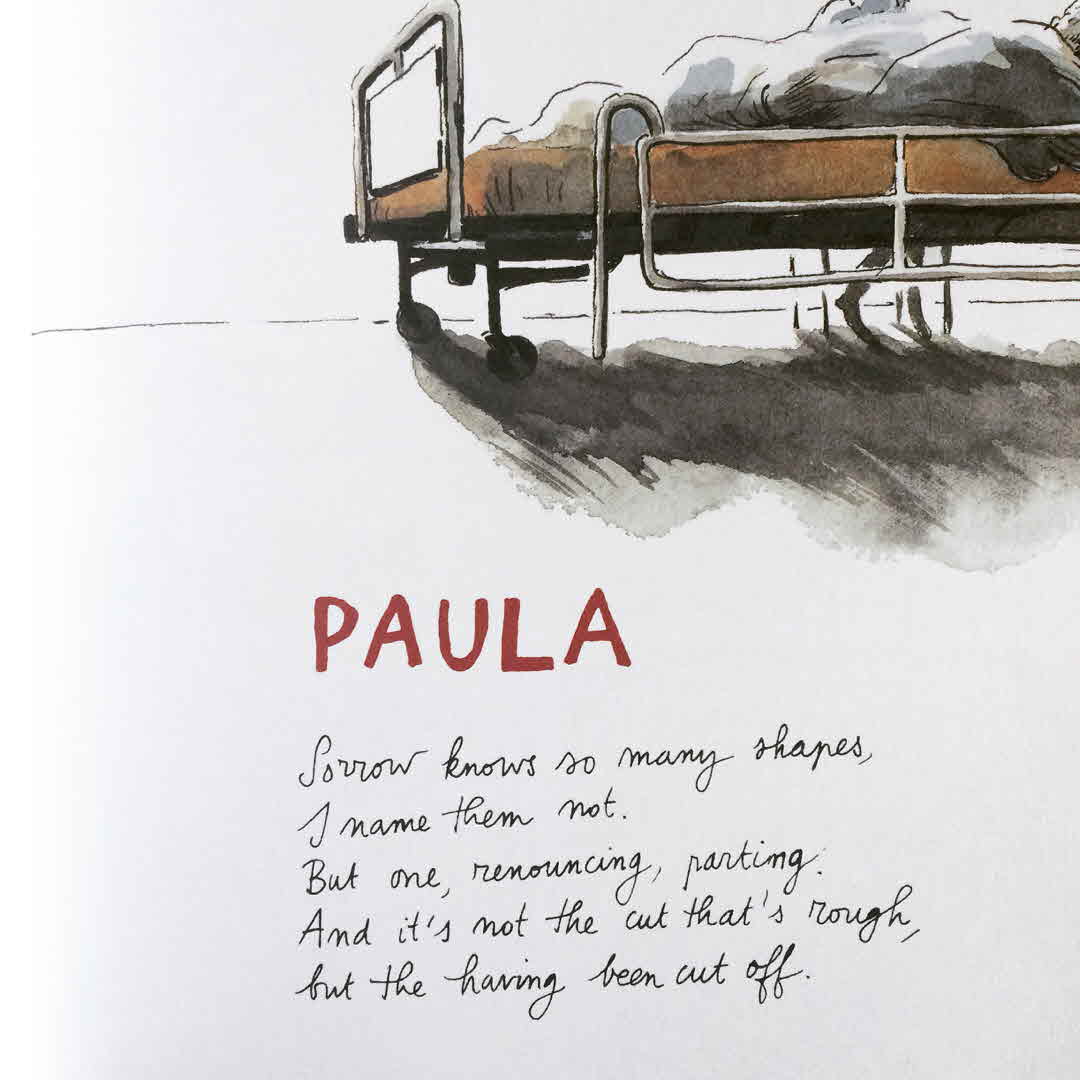 PAULA
Sorrow knows so many shapes,
I name them not.
But one, renouncing, parting:
And it's not the cut that's rough,
but the having been cut off.